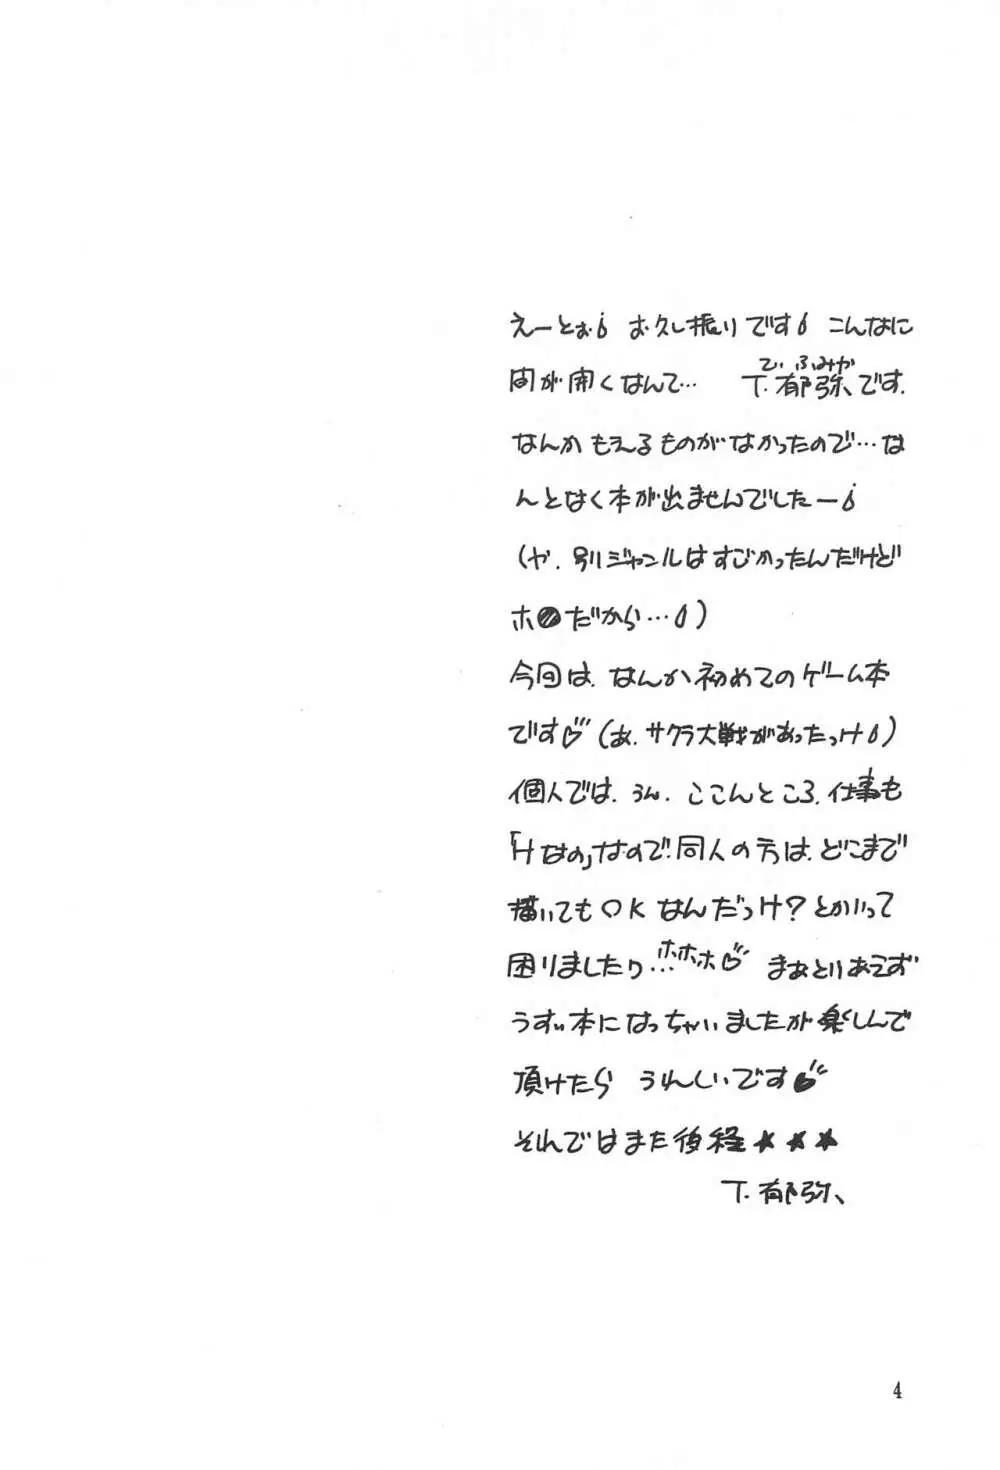 えーとぉ💧 お久し振りです💧 こんなに
間が開くなんて… T.郁弥、です.
てぃ ふみや
なんか もえるものがなかったので…な
んとなく本が出ませんでしたー💧
(や. 別ジャンルはすごかったんだけど
ホ●だから…💧)
今回は、なんか初めてのゲーム本
です♡(あ. サクラ大戦があったっけ💧)
個人では. うん. ここんところ. 仕事も
「Hなの」なので. 同人の方は、どこまで
描いてもOKなんだっけ?とかいって
困りましたり…ホホホ♡ まぁとりあえず
うすい本になっちゃいましたが楽しんで
頂けたら うれしいです♡
それではまた後程★★★
T.郁弥、
4